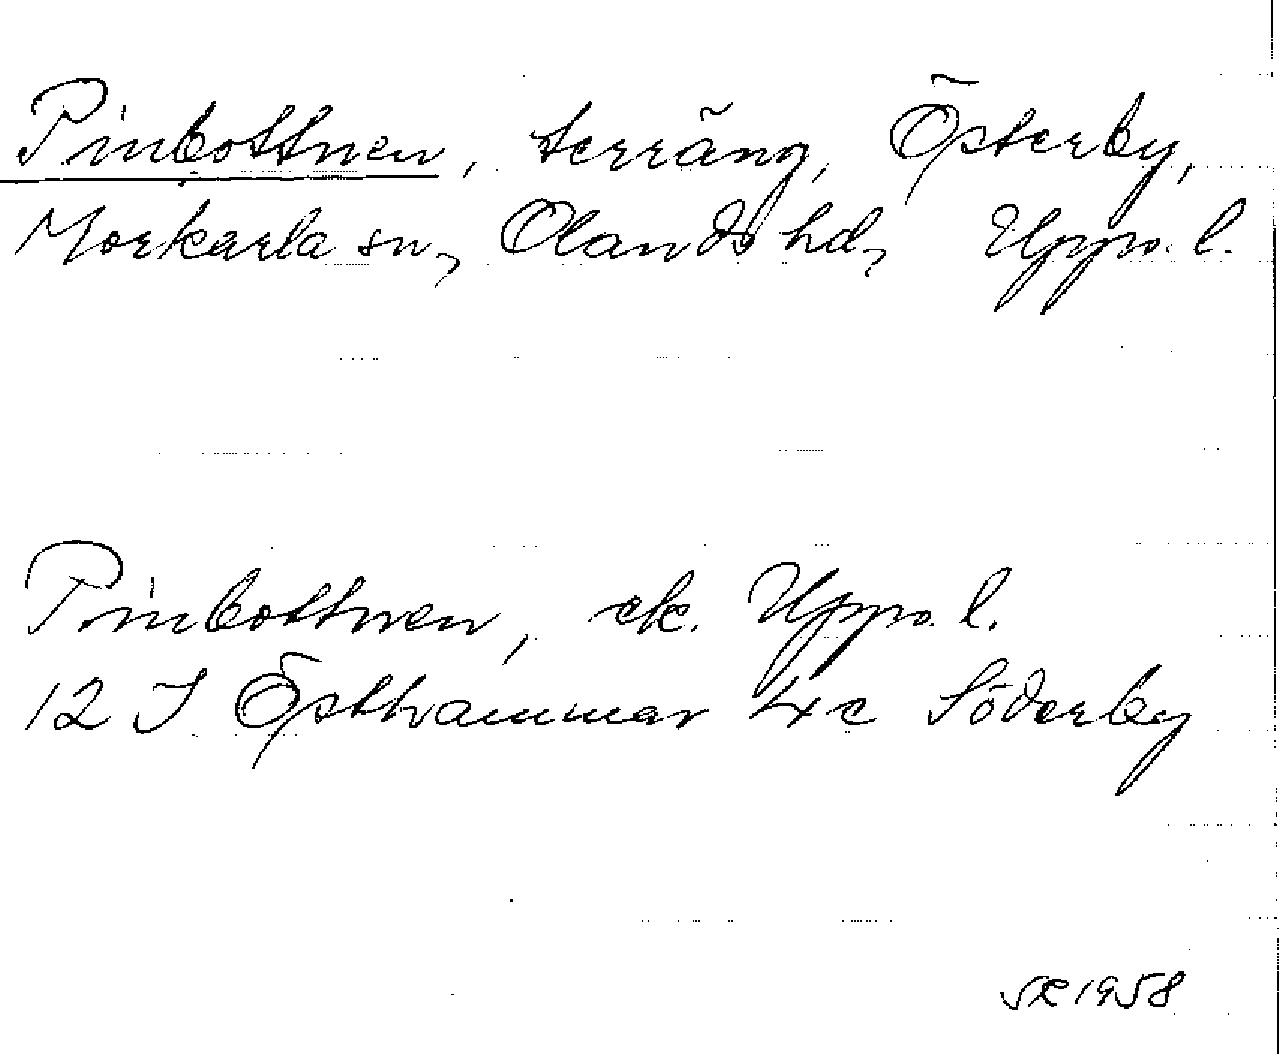 Pinbottnen, terräng, Österby,
Morkarla sn, Olands hd, Upps. l.
Pinbottnen, ek. Upps. l.
12 I Östhammar 4 c Söderby
SR 1958